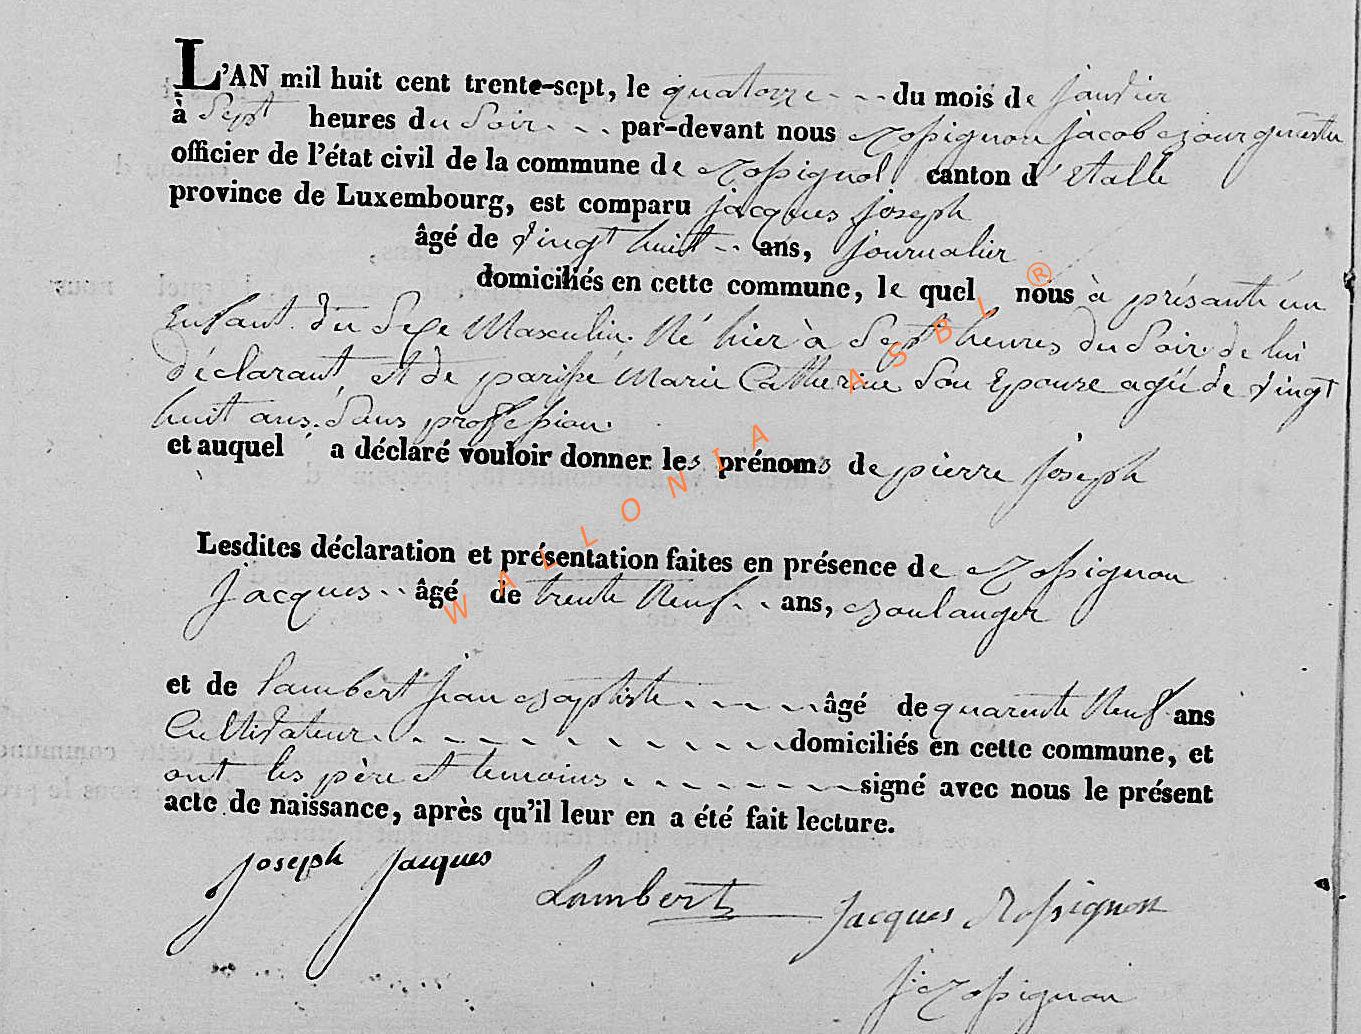 L'AN mil huit cent trente-sept, le quatorze - - - du mois de janvier
à Sept heures du Soir - - - par-devant nous Rossignon jacob Bourguestre
officier de l'état civil de la commune de Rossignol canton d'Etalle
province de Luxembourg, est comparu jacques joseph
âgé de vingt huit - - ans, journalier
domiciliés en cette commune, le quel nous à présanté un
Enfant du Sexe Masculin. Né hier à Sept heures du Soir de lui
déclarant, et de parissé Marie Catherine Son Epouse agée de vingt
huit ans. Sans profession.
et auquel a déclaré vouloir donner les prénoms de pierre joseph
Lesdites déclaration et présentation faites en présence de Rossignon
jacques - - âgé de trente Neuf - - ans, Boulanger
et de Lambert jean Baptiste - - - - - âgé de quarente Neuf ans
Cultivateur - - - - - - - - - - - - domiciliés en cette commune, et
ont les père et temoins - - - - - - - signé avec nous le présent
acte de naissance, après qu'il leur en a été fait lecture.
joseph jacques
Lambert
jacques Rossignon
j: Rossignon
WALLONIA ASBL ®